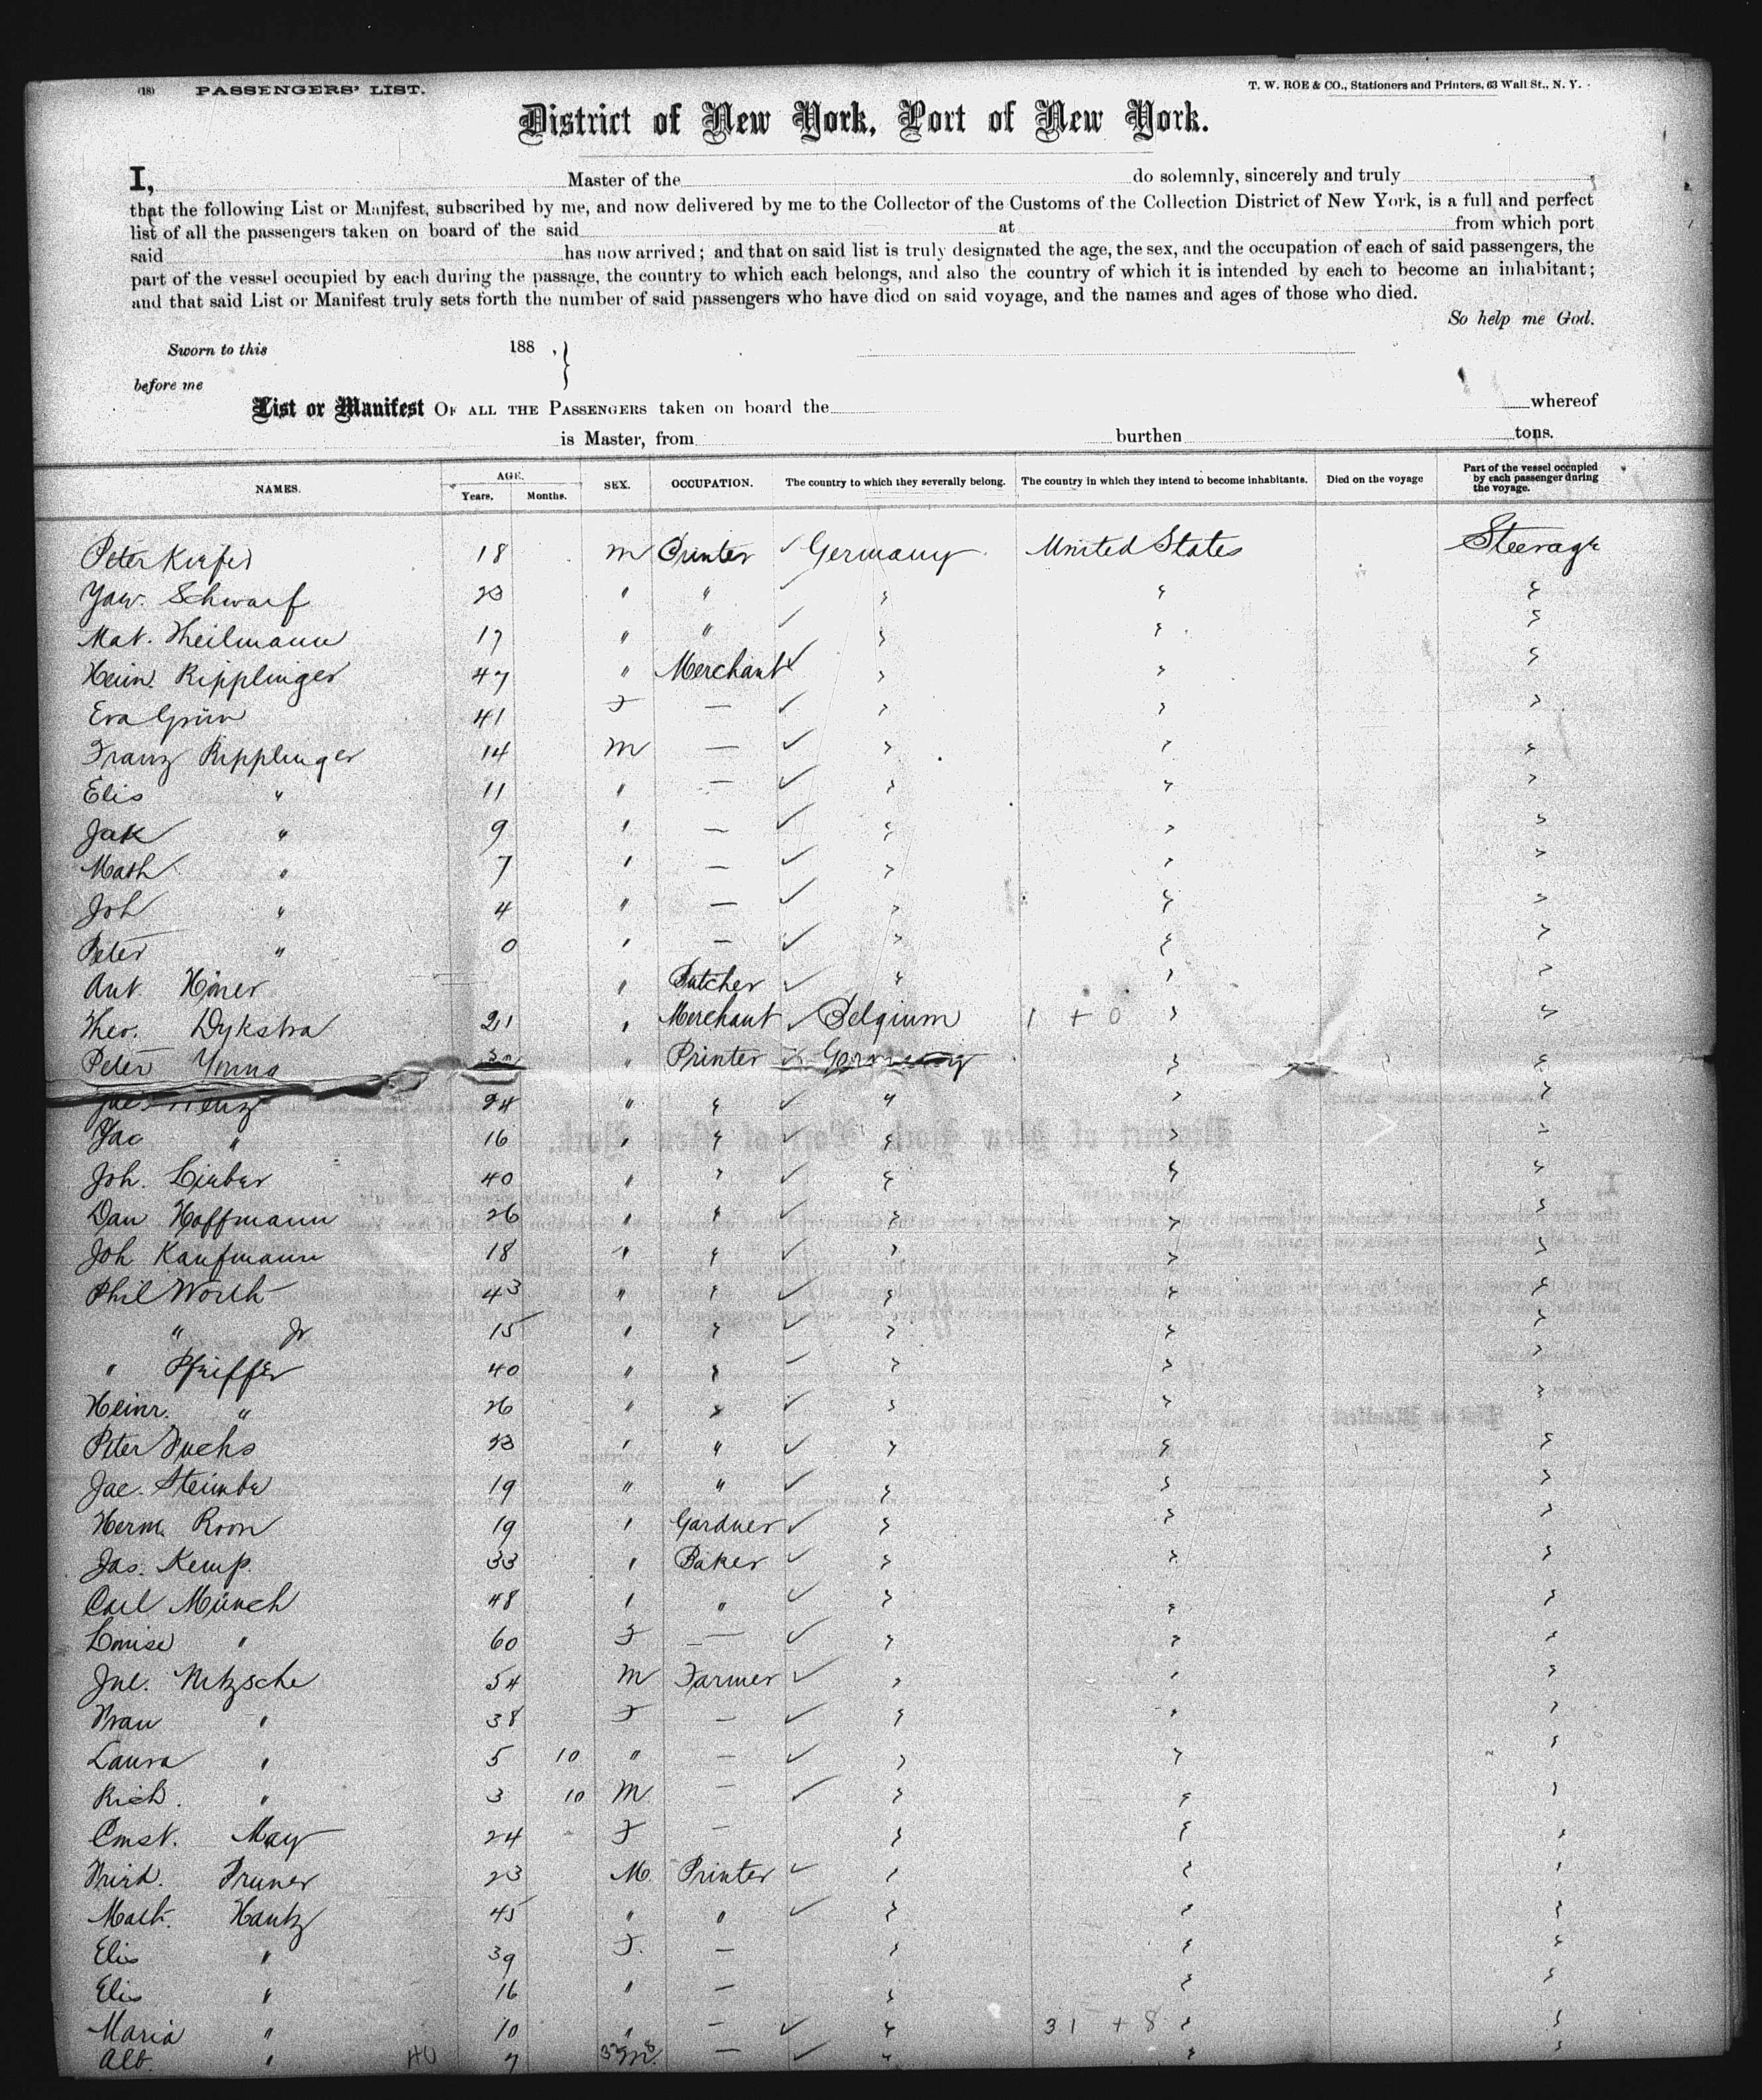 (18) PASSENGERS' LIST. T. W. ROE & CO., Stationers and Printers, 63 Wall St., N. Y.
District of New York, Port of New York.
I, Master of the do solemnly, sincerely and truly
that the following List or Manifest, subscribed by me, and now delivered by me to the Collector of the Customs of the Collection District of New York, is a full and perfect
list of all the passengers taken on board of the said at from which port
said has now arrived; and that on said list is truly designated the age, the sex, and the occupation of each of said passengers, the
part of the vessel occupied by each during the passage, the country to which each belongs, and also the country of which it is intended by each to become an inhabitant;
and that said List or Manifest truly sets forth the number of said passengers who have died on said voyage, and the names and ages of those who died.
So help me God.
Sworn to this 188 ,
before me
List or Manifest OF ALL THE PASSENGERS taken on board the whereof
is Master, from burthen tons.
NAMES. AGE. Years. Months. SEX. OCCUPATION. The country to which they severally belong. The country in which they intend to become inhabitants. Died on the voyage Part of the vessel occupied by each passenger during the voyage.
Peter Kiefer 18 m Printer ✓ Germany United States Steerage
Schwarf 23 " " ✓ " " "
Mat. Theilmann 17 " " ✓ " " "
Heinr. Ripplinger 47 " Merchant ✓ " " "
Eva Grün 41 F — ✓ " " "
Franz Ripplinger 14 m — ✓ " " "
Elis " 11 " — ✓ " " "
Jak " 9 " — ✓ " " "
Math " 7 " — ✓ " " "
Joh " 4 " — ✓ " " "
Peter " 0 " — ✓ " " "
Ant. " Butcher ✓ " " "
Theo. Dykstra 21 " Merchant ✓ Belgium 1 + 0 " "
Peter Young " Printer Germany " "
24 " " ✓ " " "
Jac " 16 " " ✓ " " "
Joh. Lieber 40 " " ✓ " " "
Dan Hoffmann 26 " " ✓ " " "
Joh Kaufmann 18 " " ✓ " " "
Phil Worth 43 " " ✓ " " "
" Jr 15 " " ✓ " " "
" Pfeiffer 40 " " ✓ " " "
Heinr. " 26 " " ✓ " " "
Peter Fuchs 23 " " ✓ " " "
Jac. 19 " " ✓ " " "
Herm. Roon 19 " Gardner ✓ " " "
Jas. Kemp. 33 " Baker ✓ " " "
Carl Münch 48 " " ✓ " " "
Louise " 60 F — ✓ " " "
Jul. Nitzsche 54 m Farmer ✓ " " "
Frau " 38 F — ✓ " " "
Laura " 5 10 " — ✓ " " "
Rich. " 3 10 M — ✓ " " "
May 24 F — " " "
Fried. Pruner 23 M. Printer ✓ " " "
Math. Hautz 45 " " ✓ " " "
Elis " 39 F. — " " "
Elis " 16 " — " " "
Maria " 10 " — ✓ " 31 + 8 " "
Alb. " 40 7 m. — ✓ " " "